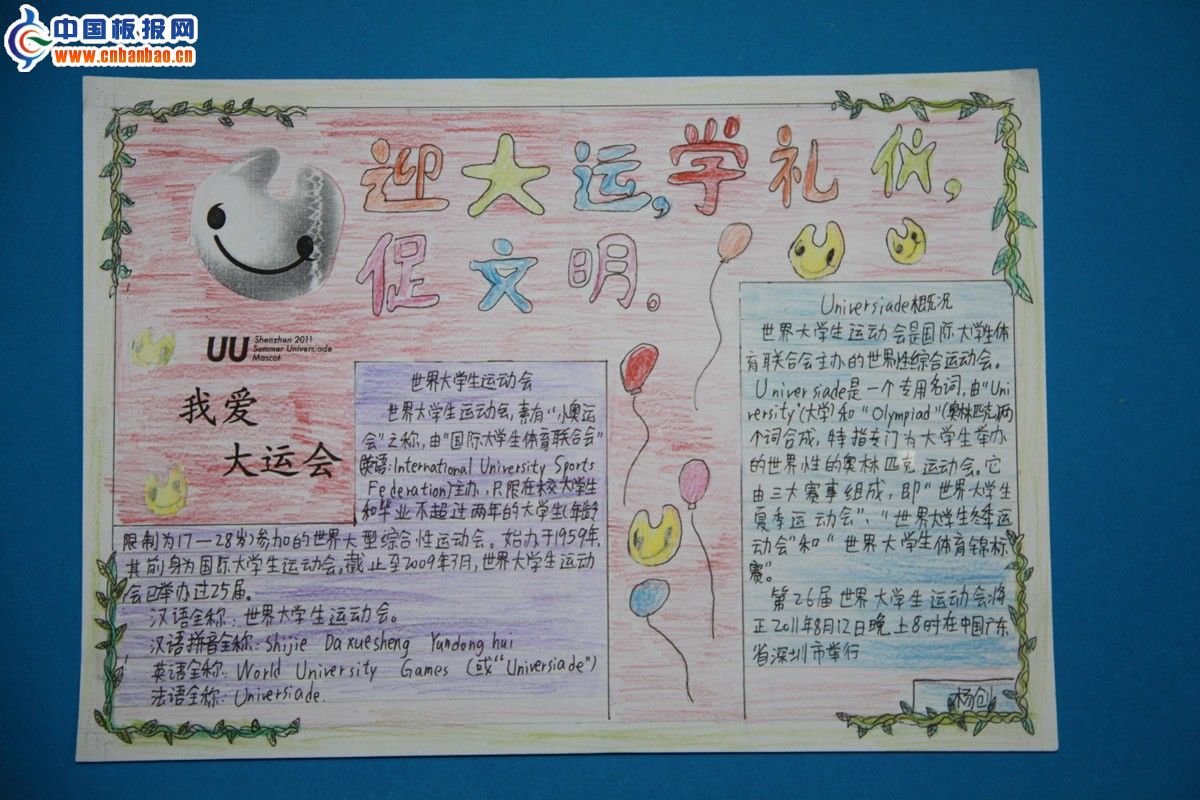 中国板报网
www.cnbanbao.cn
迎大运,学礼仪,
促文明。
UU Shenzhen 2011
Summer Universiade
Mascot
我爱
大运会
世界大学生运动会
世界大学生运动会,素有“小奥运
会”之称,由“国际大学生体育联合会”
(英语:International University Sports
Federation)主办,只限在校大学生
和毕业不超过两年的大学生(年龄
限制为17—28岁)参加的世界大型综合性运动会。始办于1959年,
其前身为国际大学生运动会。截止至2009年7月,世界大学生运动
会已举办过25届。
汉语全称:世界大学生运动会。
汉语拼音全称:Shijie Daxuesheng Yundong hui
英语全称:World University Games (或“Universiade”)
法语全称:Universiade.
Universiade概况
世界大学生运动会是国际大学生体
育联合会主办的世界性综合运动会。
Universiade是一个专用名词,由“Uni
versity”(大学)和“Olympiad”(奥林匹克)两
个词合成,特指专门为大学生举办
的世界性的奥林匹克运动会。它
由三大赛事组成,即“世界大学生
夏季运动会”、“世界大学生冬季运
动会”和“世界大学生体育锦标
赛”。
第26届世界大学生运动会将
正2011年8月12日晚上8时在中国广东
省深圳市举行
杨创